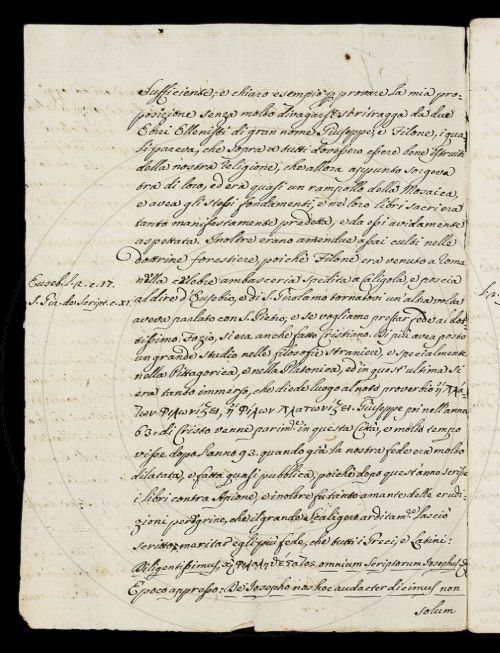 Sufficiente, e chiaro esempio p. provare la mia pro=
posizione senza molto divagarsi stritragga da due
Ebrei Ellenisti di gran nome Giuseppe, e Filone, i qua
li pareva, che sopra tutti dovessero essere bene istruiti
della nostra Religione, che allora appunto sorgeva
tra di loro, ed era quasi un rampollo della Mosaica,
e avea gli stessi fondamenti, e ne' loro libri Sacri era
tanto manifestamente predetta, e da essi avidamente
aspettata. Inoltre erano amendue assai culti nelle
dottrine forestiere, poichè Filone era venuto a Roma
nella celebre ambasceria spedita a Caligola, e poscia
al dire d'Eusebio, e di S. Girolamo tornatovi un'altra volta
aveva parlato con S. Pietro, e se vogliamo prestar fede al dot=
tissimo Fozio, si era anche fatto Cristiano. Di più avea posto
un grande studio nelle filosofie straniere, e specialmente
nella Pittagorica, e nella Platonica, ed in quest'ultima s'e
era tanto immerso, che diede luogo al noto proverbio ἢ Πλά=
των φιλωνίζει, ἢ Φίλων πλατωνίζει. Giuseppe poi nell'anno
63. di Cristo venne parimte in questa Città, e molto tempo
visse dopo l'anno 93. quando già la nostra fede era molto
dilatata, e fatta quasi pubblica, poichè dopo quest'anno scrisse
i libri contra Apione, e inoltre fu tanto amante della erudi=
zioni peregrine, che il grande Scaligero arditamte lasciò
scritto, meritar egli più fede, che tutti i Greci, e Latini:
Diligentissimus, omnium Scriptorum Josephus. E
poco appresso: De Josepho nos hoc audacter dicimus non
solum
Euseb. l. 2. c. 17.
S. Gir. de Script. c. XI.